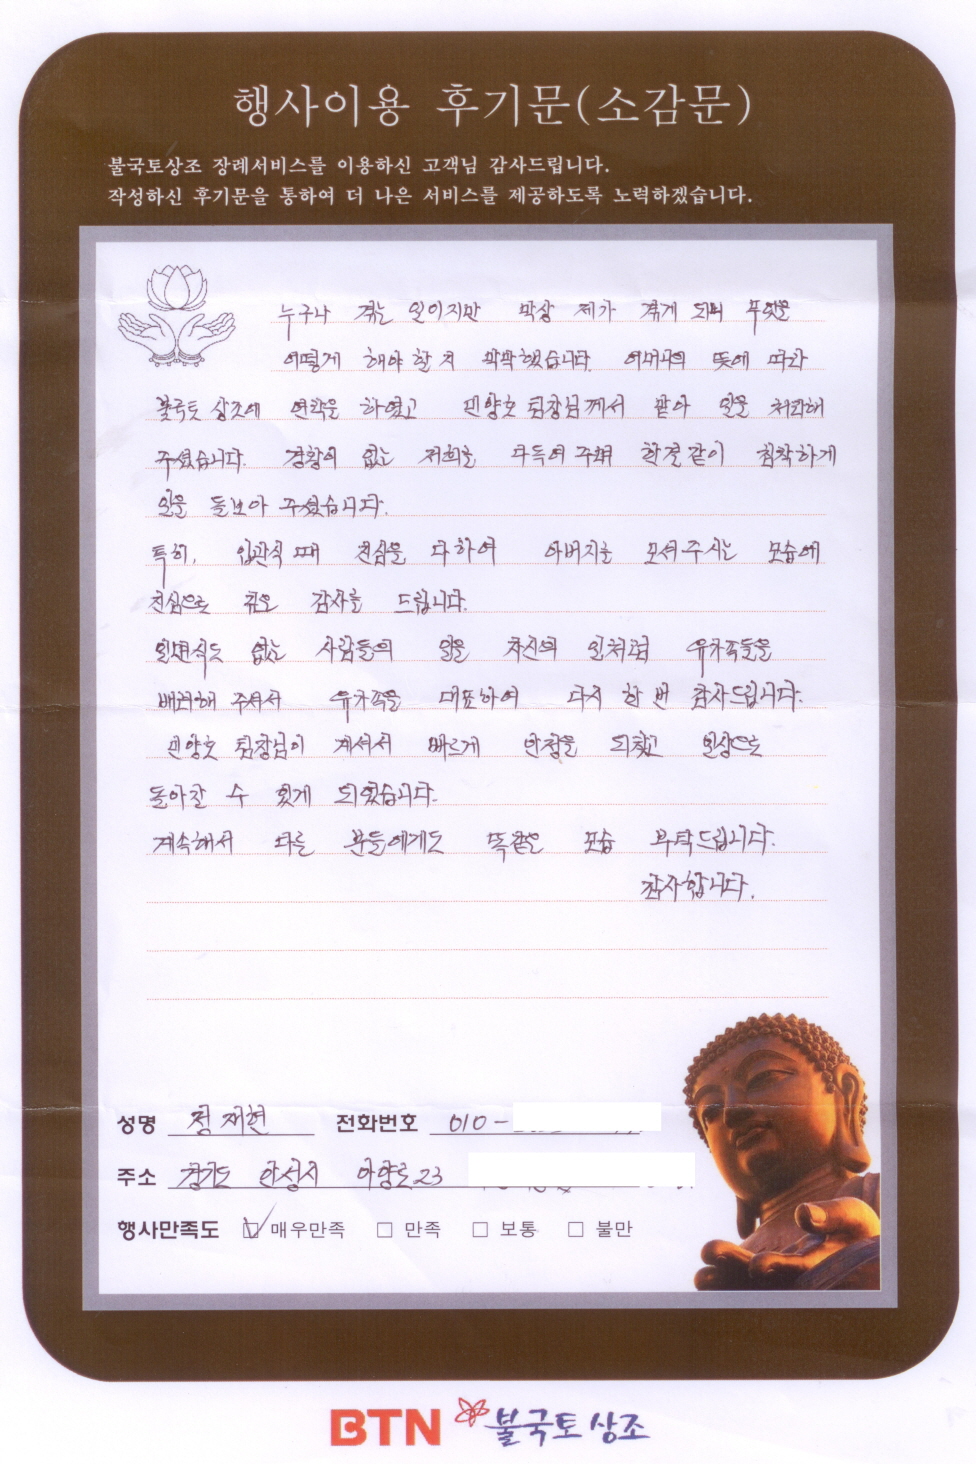 행사이용 후기문(소감문)
불국토상조 장례서비스를 이용하신 고객님 감사드립니다.
작성하신 후기문을 통하여 더 나은 서비스를 제공하도록 노력하겠습니다.
누구나 겪는 일이지만 막상 제가 겪게 되니 무엇을
어떻게 해야 할 지 막막했습니다. 어머니의 뜻에 따라
불국토 상조에 연락을 하였고 민양호 팀장님께서 맡아 일을 처리해
주셨습니다. 경황이 없는 저희를 다독여 주며 한결같이 침착하게
일을 돌보아 주셨습니다.
특히, 입관식 때 진심을 다하여 아버지를 모셔주시는 모습에
진심으로 깊은 감사를 드립니다.
일면식도 없는 사람들의 일을 자신의 일처럼 유가족들을
배려해 주셔서 유가족을 대표하여 다시 한 번 감사드립니다.
민양호 팀장님이 계셔서 빠르게 안정을 되찾고 일상으로
돌아갈 수 있게 되었습니다.
계속해서 다른 분들에게도 똑같은 모습 부탁드립니다.
감사합니다.
성명 정재현 전화번호 010-
주소 경기도 안성시 아양로23
행사만족도 ☑ 매우만족 □ 만족 □ 보통 □ 불만
BTN 불국토상조